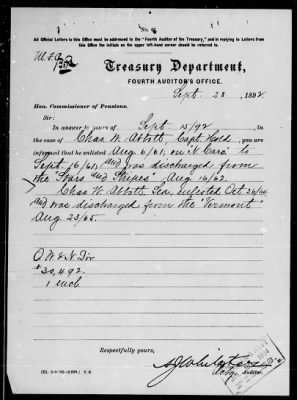 All Official Letters to this Office must be addressed to the "Fourth Auditor of the Treasury," and in replying to Letters from
this Office the initials on the upper left-hand corner should be referred to.
Treasury Department,
FOURTH AUDITOR'S OFFICE.
Sept. 28, 1892.
Hon. Commissioner of Pensions.
Sir:
In answer to yours of Sept. 15/92, in
the case of Chas. W. Abbott, Capt. , you are
informed that he enlisted Aug 6/61, on "" to
Sept. 16/61, and was discharged from
the "Stars and Stripes", Aug 16/62.
Chas. W. Abbott, Sea, enlisted Oct 26/64
and was discharged from the "Vermont"
Aug 23/65.
O W & N Div
30,492.
1 encl
Respectfully yours,
Auditor.